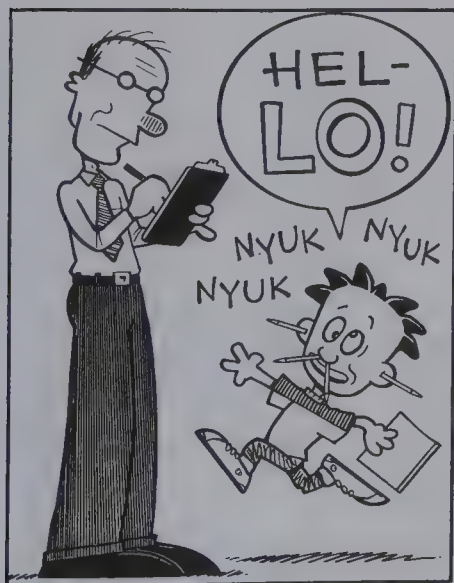 HEL-
LO!
NYUK NYUK
NYUK